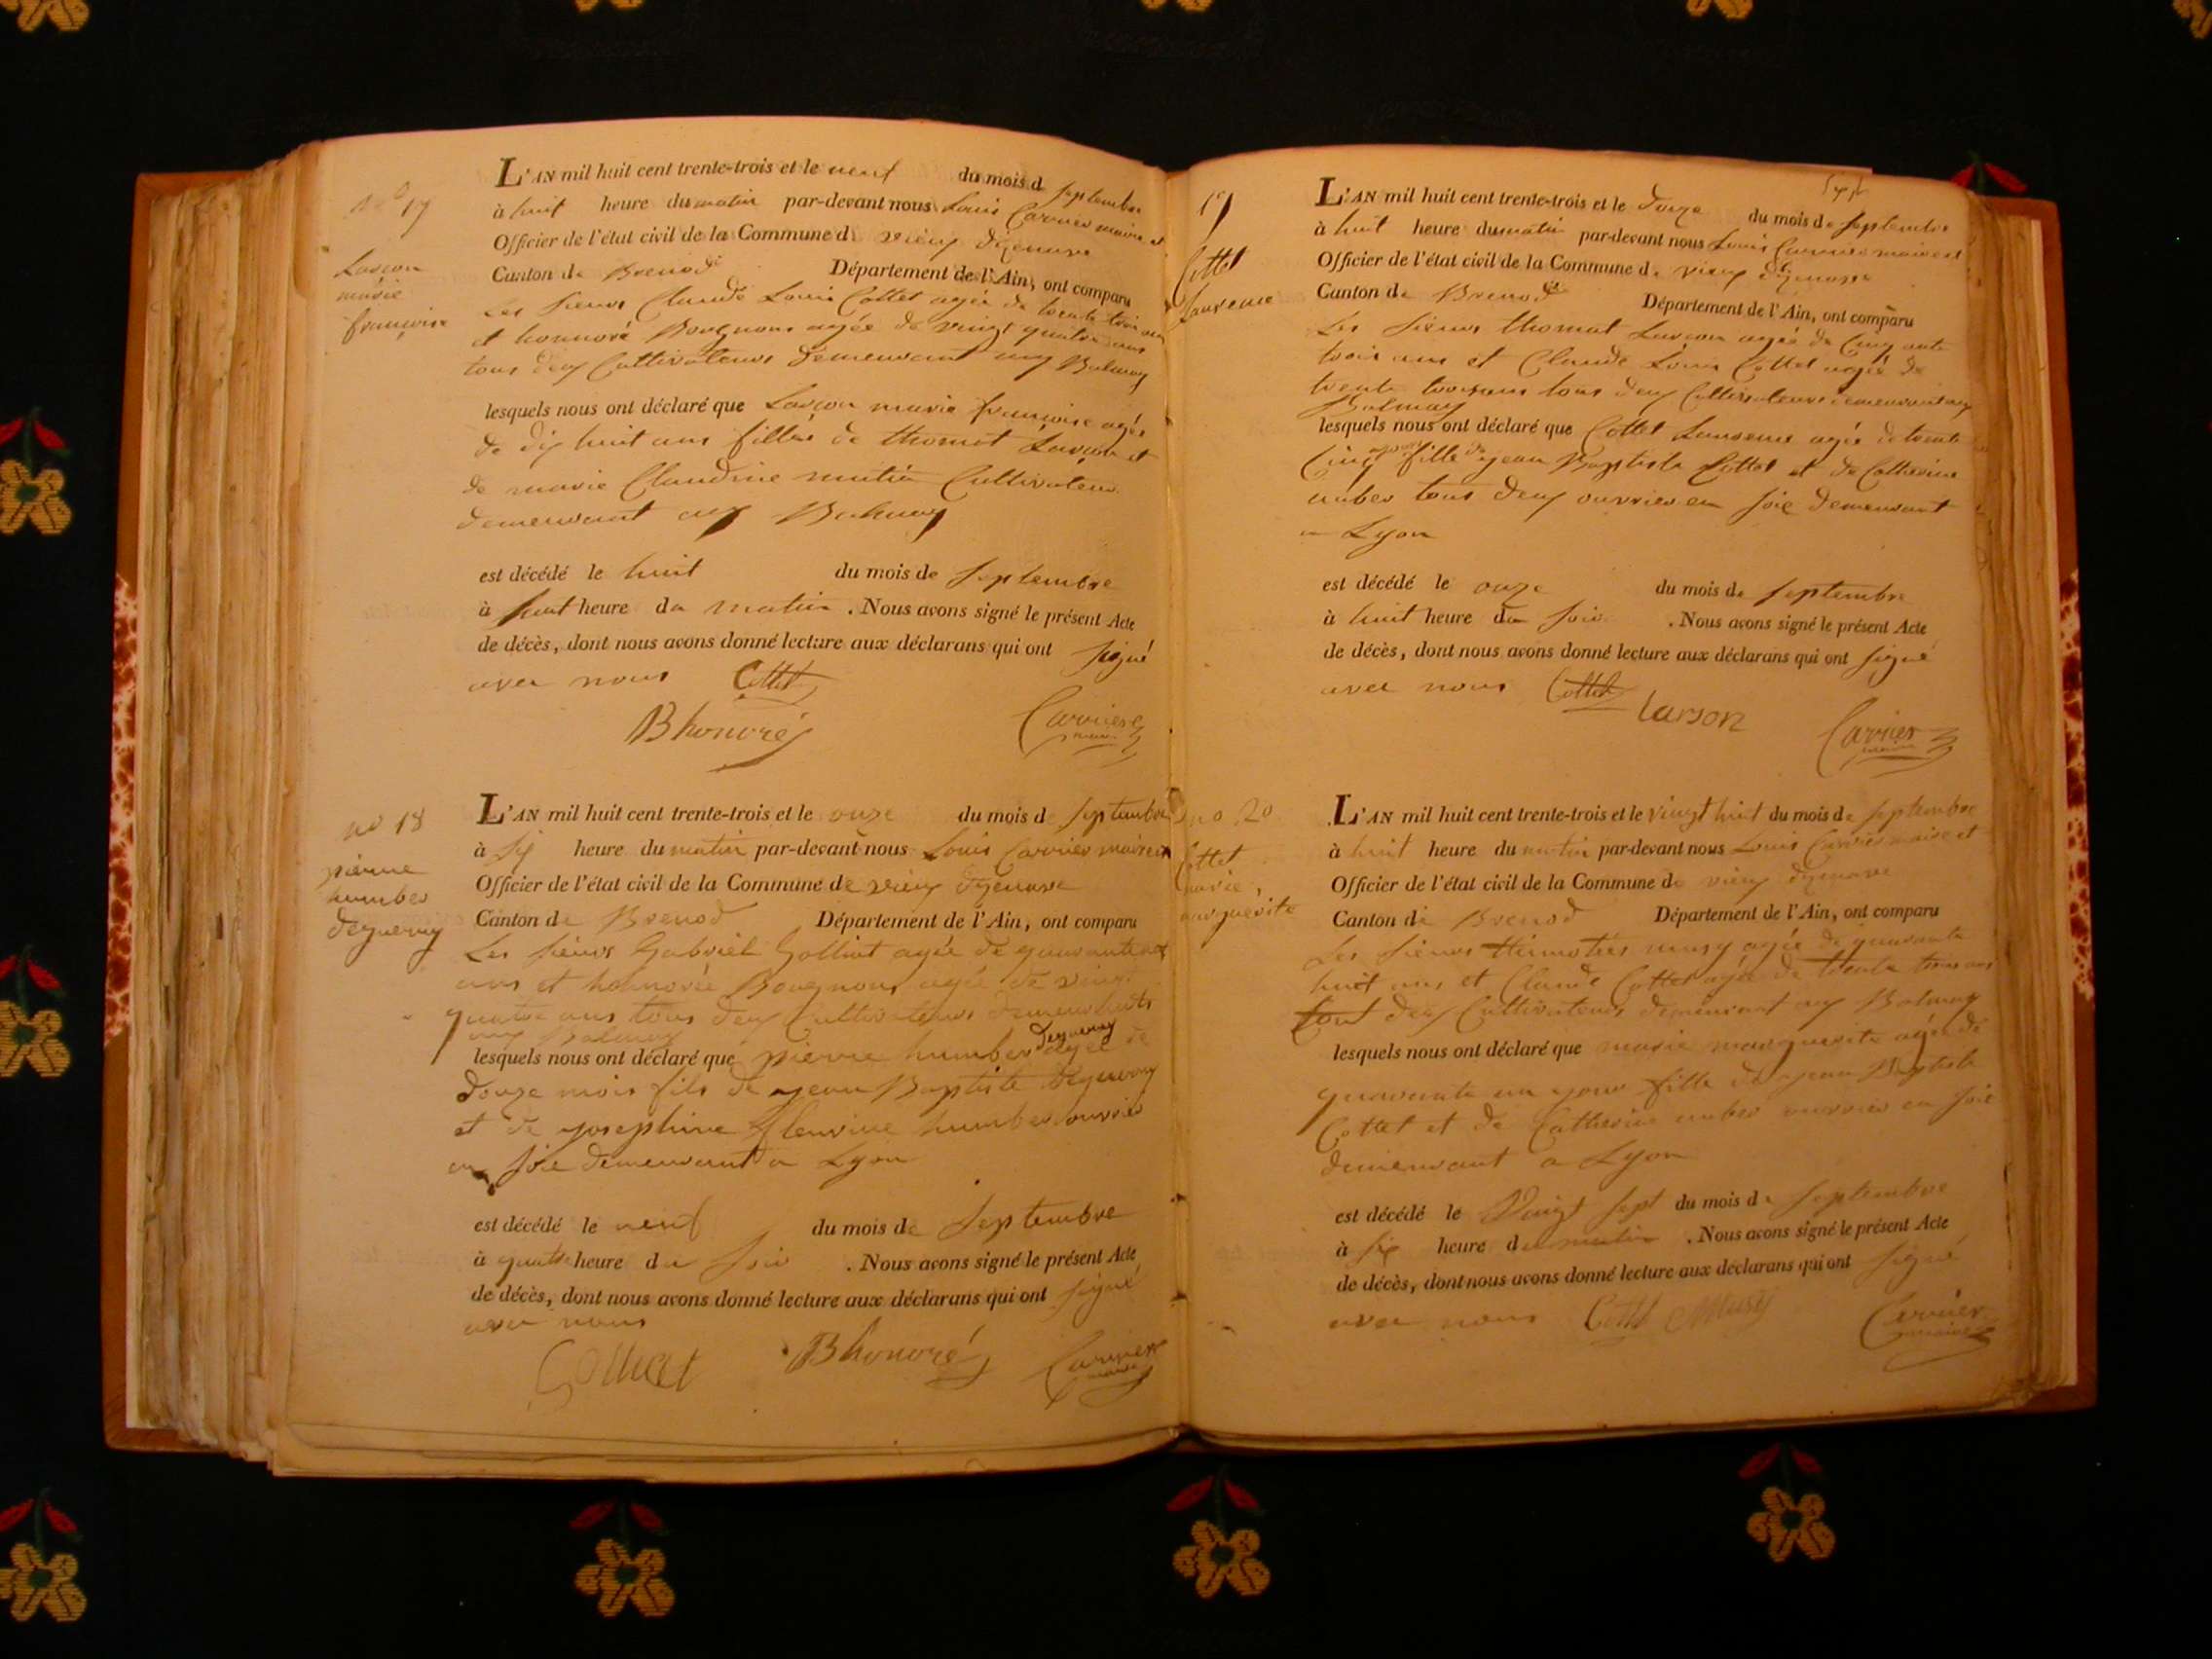 no 17
Larçon
marie
françoise
L'AN mil huit cent trente-trois et le neuf du mois d septembre
à huit heure du matin par-devant nous Louis Carrier maire et
Officier de l'état civil de la Commune d vieux dizenave
Canton de Brenod Département de l'Ain, ont comparu
Les sieurs Claude Louis Cottet agée de trente trois ans
et honnoré Bougnous agée de vingt quatre ans
tous deux Cultivateurs demeurant aux Balmay
lesquels nous ont déclaré que Larçon marie françoise agée
de dix huit ans filles de thomat Larçon et
de marie Claudine mutin Cultivateur
demeurant aux Balmay
est décédé le huit du mois de septembre
à huit heure du matin . Nous avons signé le présent Acte
de décès, dont nous avons donné lecture aux déclarans qui ont signé
avec nous Cottet
B honoré Carrier
maire
no 18
pierre
humber
degueruy
L'AN mil huit cent trente-trois et le onze du mois d septembre
à six heure du matin par-devant nous Louis Carrier maire et
Officier de l'état civil de la Commune de vieux dizenave
Canton de Brenod Département de l'Ain, ont comparu
Les sieurs Gabriel Golliat agée de quarante
ans et honnorée Bougnous agée de vingt
quatre ans tous deux Cultivateurs demeurants
aux Balmay
lesquels nous ont déclaré que pierre humber agée de
douze mois fils de jean Baptiste
et de josephine fleurine humber ouvrier
en soie demeurant a Lyon
est décédé le neuf du mois de septembre
à quatre heure du soir . Nous avons signé le présent Acte
de décès, dont nous avons donné lecture aux déclarans qui ont signé
avec nous
Golliat B honoré Carrier
maire
19
Cottet
Laurence
Sept
L'AN mil huit cent trente-trois et le douze du mois de septembre
à huit heure du matin par-devant nous Louis Carrier maire et
Officier de l'état civil de la Commune de vieux dizenave
Canton de Brenod Département de l'Ain, ont comparu
Les sieurs thomat Larçon agée de Cinquante
trois ans et Claude Louis Cottet agée de
trente trois ans tous deux Cultivateurs demeurant aux
Balmay
lesquels nous ont déclaré que Cottet Laurence agée de trente
Cinq jour fille de jean Baptiste Cottet et de Catherine
umber tous deux ouvrier en soie demeurant
a Lyon
est décédé le onze du mois de septembre
à huit heure du soir . Nous avons signé le présent Acte
de décès, dont nous avons donné lecture aux déclarans qui ont signé
avec nous Cottet
Larson Carrier
maire
no 20
Cottet
marie
marguerite
L'AN mil huit cent trente-trois et le vingt huit du mois de septembre
à huit heure du matin par-devant nous Louis Carrier maire et
Officier de l'état civil de la Commune de vieux dizenave
Canton de Brenod Département de l'Ain, ont comparu
Les sieurs thimotée musy agée de quarante
huit ans et Claude Cottet agée de trente trois ans
tout deux Cultivateurs demeurant aux Balmay
lesquels nous ont déclaré que marie marguerite agée de
quarante un jour fille de jean Baptiste
Cottet et de Catherine umber ouvrier en soie
demeurant a Lyon
est décédé le vingt sept du mois de septembre
à six heure du matin . Nous avons signé le présent Acte
de décès, dont nous avons donné lecture aux déclarans qui ont signé
avec nous Cottet Musy Carrier
maire